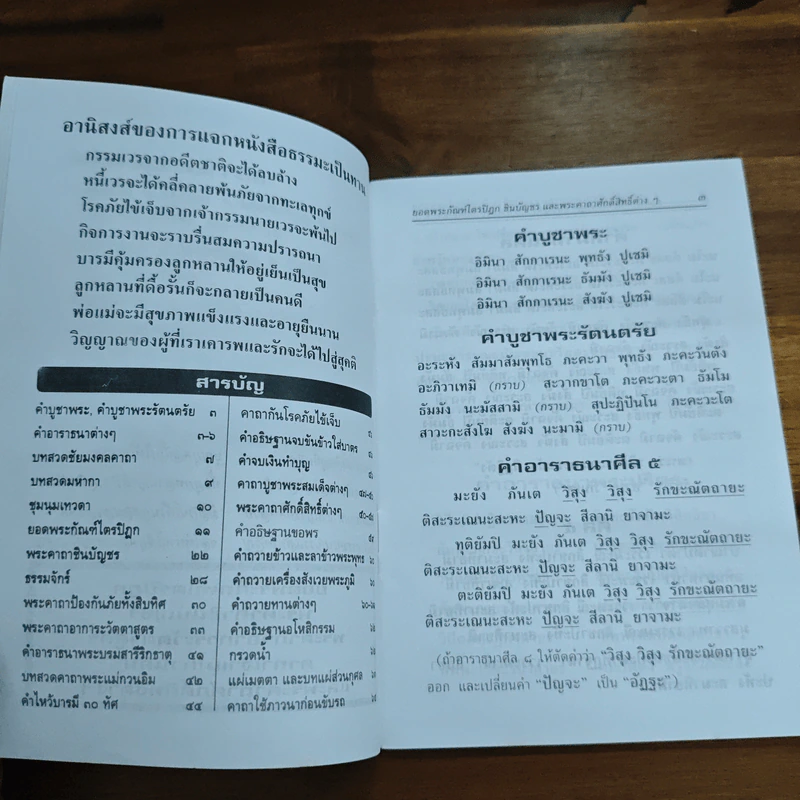 อานิสงส์ของการแจกหนังสือธรรมะเป็นทาน
กรรมเวรจากอดีตชาติจะได้ลบล้าง
หนี้เวรจะได้คลี่คลายพ้นภัยจากทะเลทุกข์
โรคภัยไข้เจ็บจากเจ้ากรรมนายเวรจะพ้นไป
กิจการงานจะราบรื่นสมความปรารถนา
บารมีคุ้มครองลูกหลานให้อยู่เย็นเป็นสุข
ลูกหลานที่ดื้อรั้นก็จะกลายเป็นคนดี
พ่อแม่จะมีสุขภาพแข็งแรงและอายุยืนนาน
วิญญาณของผู้ที่เราเคารพและรักจะได้ไปสู่สุคติ
สารบัญ
คำบูชาพระ, คำบูชาพระรัตนตรัย ๓
คำอาราธนาต่างๆ ๓-๖
บทสวดชัยมงคลคาถา ๗
บทสวดมหากา ๙
ชุมนุมเทวดา ๑๐
ยอดพระกัณฑ์ไตรปิฎก ๑๑
พระคาถาชินบัญชร ๒๒
ธรรมจักร์ ๒๘
พระคาถาป้องกันภัยทั้งสิบทิศ ๓๐
พระคาถาอาการะวัตตาสูตร ๓๓
คำอาราธนาพระบรมสารีริกธาตุ ๔๑
บทสวดคาถาพระแม่กวนอิม ๔๒
คำไหว้บารมี ๓๐ ทัศ ๔๔
คาถากันโรคภัยไข้เจ็บ
คำอธิษฐานจบขันข้าวใส่บาตร
คำจบเงินทำบุญ
คาถาบูชาพระสมเด็จต่างๆ
พระคาถาศักดิ์สิทธิ์ต่างๆ
คำอธิษฐานขอพร
คำถวายข้าวและลาข้าวพระพุทธ
คำถวายเครื่องสังเวยพระภูมิ
คำถวายทานต่างๆ
คำอธิษฐานอโหสิกรรม
กรวดน้ำ
แผ่เมตตา และบทแผ่ส่วนกุศล
คาถาใช้ภาวนาก่อนขับรถ
ยอดพระกัณฑ์ไตรปิฎก ชินบัญชร และพระคาถาศักดิ์สิทธิ์ต่าง ๆ ๓
คำบูชาพระ
อิมินา สักกาเรนะ พุทธัง ปูเชมิ
อิมินา สักกาเรนะ ธัมมัง ปูเชมิ
อิมินา สักกาเรนะ สังฆัง ปูเชมิ
คำบูชาพระรัตนตรัย
อะระหัง สัมมาสัมพุทโธ ภะคะวา พุทธัง ภะคะวันตัง
อะภิวาเทมิ (กราบ) สะวากขาโต ภะคะวะตา ธัมโม
ธัมมัง นะมัสสามิ (กราบ) สุปะฏิปันโน ภะคะวะโต
สาวะกะสังโฆ สังฆัง นะมามิ (กราบ)
คำอาราธนาศีล ๕
มะยัง ภันเต วิสุง วิสุง รักขะณัตถายะ
ติสะระเณนะสะหะ ปัญจะ สีลานิ ยาจามะ
ทุติยัมปิ มะยัง ภันเต วิสุง วิสุง รักขะณัตถายะ
ติสะระเณนะสะหะ ปัญจะ สีลานิ ยาจามะ
ตะติยัมปิ มะยัง ภันเต วิสุง วิสุง รักขะณัตถายะ
ติสะระเณนะสะหะ ปัญจะ สีลานิ ยาจามะ
(ถ้าอาราธนาศีล ๘ ให้ตัดคำว่า "วิสุง วิสุง รักขะณัตถายะ"
ออก และเปลี่ยนคำ "ปัญจะ" เป็น "อัฏฐะ")